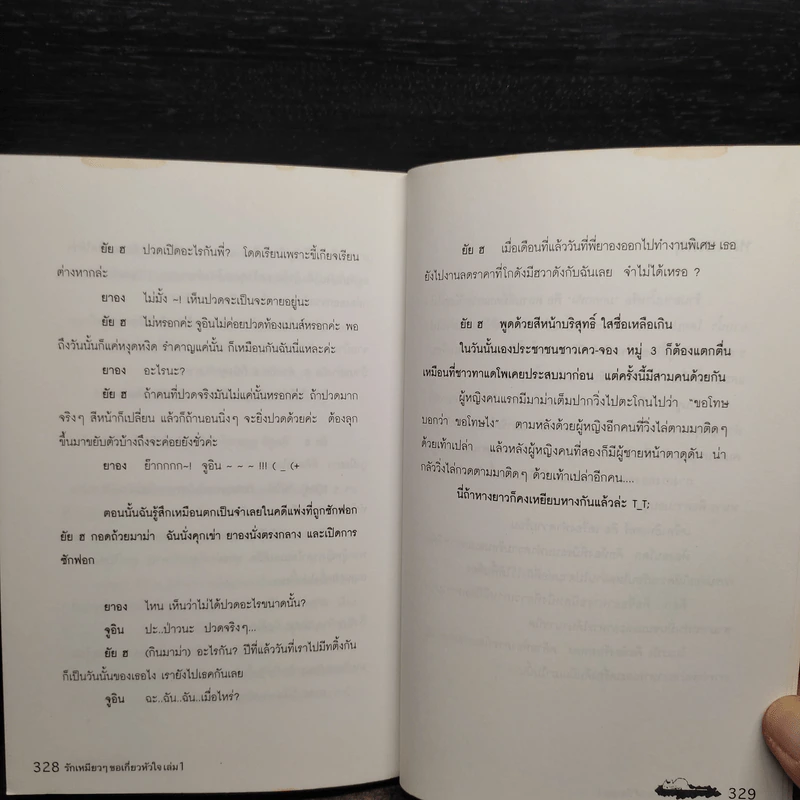 ยัย ฮ ปวดเปิดอะไรกันพี่? โดดเรียนเพราะขี้เกียจเรียน
ต่างหากล่ะ
ยาอง ไม่มั้ง ~! เห็นปวดจะเป็นจะตายอยู่นะ
ยัย ฮ ไม่หรอกค่ะ จูอินไม่ค่อยปวดท้องเมนส์หรอกค่ะ พอ
ถึงวันนั้นก็แค่หงุดหงิด รำคาญแค่นั้น ก็เหมือนกันฉันนี่แหละค่ะ
ยาอง อะไรนะ?
ยัย ฮ ถ้าคนที่ปวดจริงมันไม่แค่นั้นหรอกค่ะ ถ้าปวดมาก
จริงๆ สีหน้าก็เปลี่ยน แล้วก็ถ้านอนนิ่งๆ จะยิ่งปวดด้วยค่ะ ต้องลุก
ขึ้นมาขยับตัวบ้างถึงจะค่อยยังชั่วค่ะ
ยาอง ย๊ากกกก~! จูอิน ~ ~ ~ !!! ( _ (+
ตอนนั้นฉันรู้สึกเหมือนตกเป็นจำเลยในคดีแพ่งที่ถูกซักฟอก
ยัย ฮ กอดถ้วยมาม่า ฉันนั่งคุกเข่า ยาองนั่งตรงกลาง และเปิดการ
ซักฟอก
ยาอง ไหน เห็นว่าไม่ได้ปวดอะไรขนาดนั้น?
จูอิน ปะ..ป่าวนะ ปวดจริงๆ...
ยัย ฮ (กินมาม่า) อะไรกัน? ปีที่แล้ววันที่เราไปมีทติ้งกัน
ก็เป็นวันนั้นของเธอไง เรายังไปเธคกันเลย
จูอิน ฉะ..ฉัน..ฉัน..เมื่อไหร่?
328 รักเหมียวๆ ขอเกี่ยวหัวใจ เล่ม 1
ยัย ฮ เมื่อเดือนที่แล้ววันที่พี่ยาองออกไปทำงานพิเศษ เธอ
ยังไปงานลดราคาที่โกดังมีฮวาดังกับฉันเลย จำไม่ได้เหรอ ?
ยัย ฮ พูดด้วยสีหน้าบริสุทธิ์ ใสซื่อเหลือเกิน
ในวันนั้นเองประชาชนชาวเคว-จอง หมู่ 3 ก็ต้องแตกตื่น
เหมือนที่ชาวทาแดโพเคยประสบมาก่อน แต่ครั้งนี้มีสามคนด้วยกัน
ผู้หญิงคนแรกมีมาม่าเต็มปากวิ่งไปตะโกนไปว่า "ขอโทษ
บอกว่า ขอโทษไง" ตามหลังด้วยผู้หญิงอีกคนที่วิ่งไล่ตามมาติดๆ
ด้วยเท้าเปล่า แล้วหลังผู้หญิงคนที่สองก็มีผู้ชายหน้าตาดุดัน น่า
กลัววิ่งไล่กวดตามมาติดๆ ด้วยเท้าเปล่าอีกคน....
นี่ถ้าหางยาวก็คงเหยียบหางกันแล้วล่ะ T_T;
329